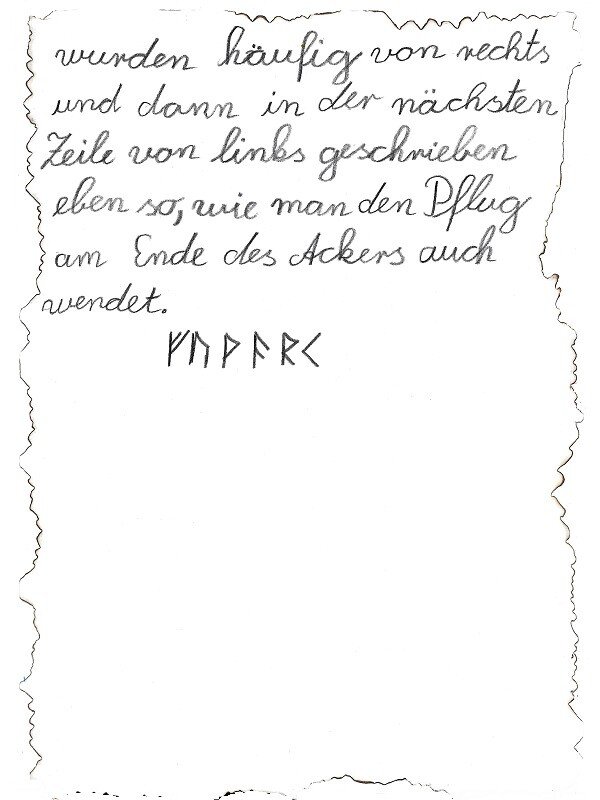 wurden häufig von rechts
und dann in der nächsten
Zeile von links geschrieben
eben so, wie man den Pflug
am Ende des Ackers auch
wendet.
ᚠᚢᚹᚨᚱᚲ